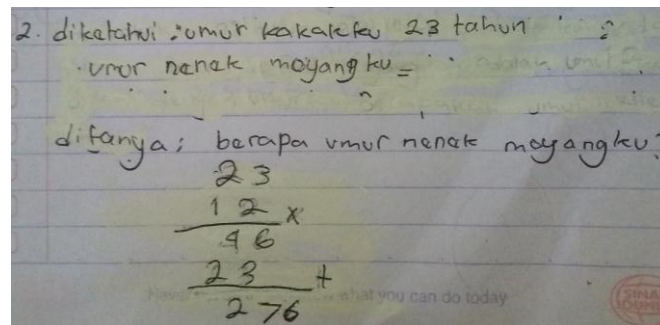 2. diketahui : umur kakakku 23 tahun
umur nenek moyangku =
ditanya : berapa umur nenek moyangku?
23
12 x
46
23 +
276
what you can do today
SINA